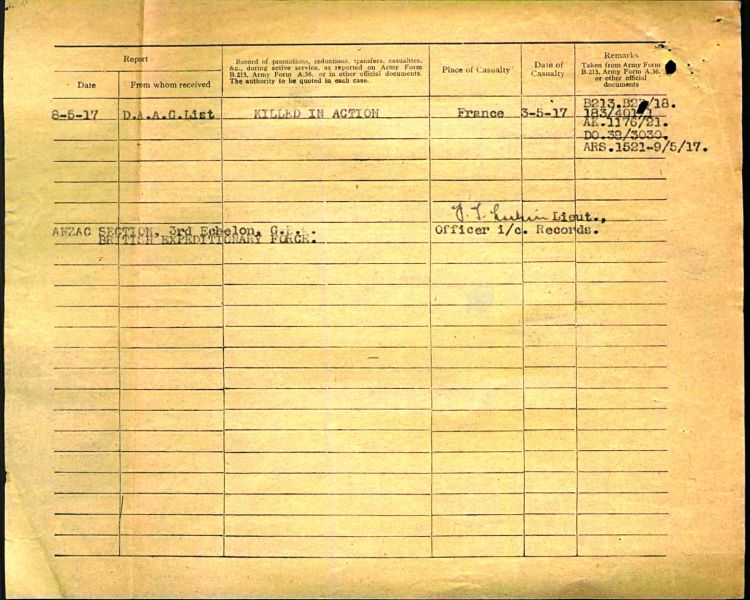 Report
Date
From whom received
Record of promotions, reductions, transfers, casualties,
&c., during active service, as reported on Army Form
B.213, Army Form A.36, or in other official documents.
The authority to be quoted in each case.
Place of Casualty
Date of
Casualty
Remarks
Taken from Army Form
B.213, Army Form A.36,
or other official
documents
8-5-17 D.A.A.G.List KILLED IN ACTION France 3-5-17
B213.B27/18.
AK.1176/21.
DO.38/3030.
ARS.1521-9/5/17.
Lieut.,
ANZAC SECTION, 3rd Echelon, Officer i/c. Records.
BRITISH EXPEDITIONARY FORCE.